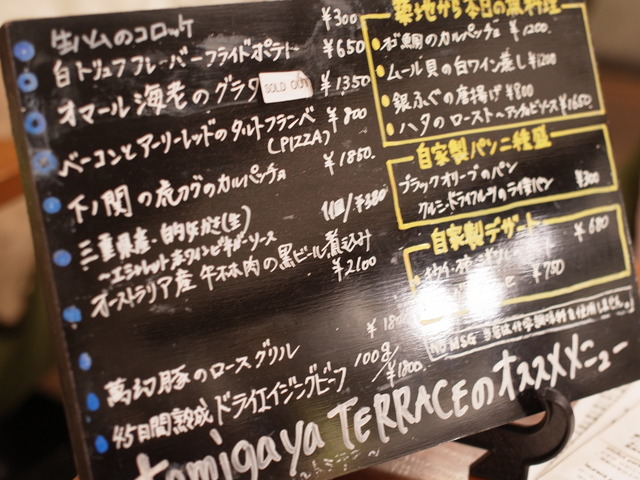 生ハムのコロッケ ¥300
白トリュフフレーバーフライドポテト ¥650
オマール海老のグラタ SOLD OUT ¥1350
ベーコンとアーリーレッドのタルトフランベ ¥800
(PIZZA)
下ノ関の虎フグのカルパッチョ ¥1850.
三重県産・的矢かき(生) 1個/¥380
〜エシャレット赤ワインビネガーソース
オーストラリア産 牛ホホ肉の黒ビール煮込み
¥2100
¥1800
萬幻豚のロースグリル
45日間熟成 ドライエイジングビーフ 100g/¥1800.
tomigaya TERRACEのオススメメニュー
築地から本日の魚料理
鯛のカルパッチョ ¥1200.
ムール貝の白ワイン蒸し ¥1200
銀ふぐの唐揚げ ¥800
ハタのロースト〜アンチョビソース ¥1650.
自家製パン二種盛
ブラックオリーブのパン
クルミ・ドライフルーツのライ麦パン ¥300
自家製デザート
¥680
¥750
NO MSG 当店は化学調味料を使用しません。